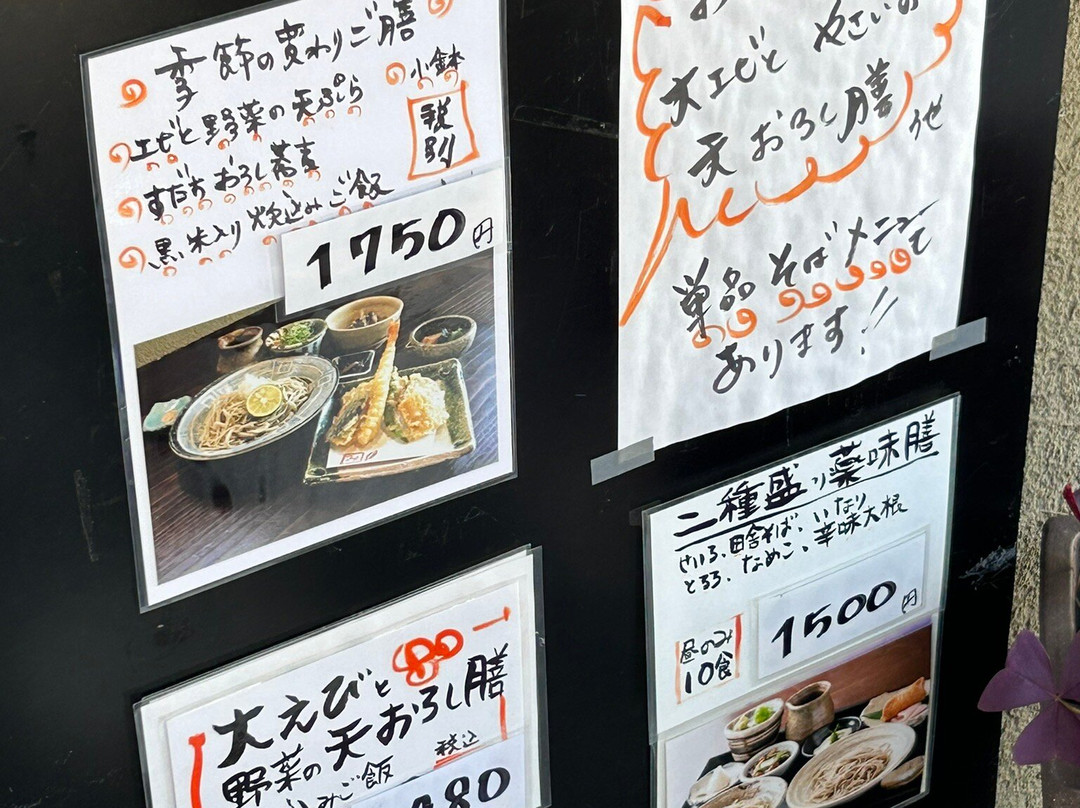 季節の変わりご膳
エビと野菜の天ぷら
小鉢
すだちおろし蕎麦
税別
黒米入り炊込みご飯
1750円
大エビと やさいの
天おろし膳 他
単品そばメニュー
あります!!
二種盛り薬味膳
せいろ、田舎そば、いなり
とろろ、なめこ、辛味大根
1500円
昼のみ
10食
大えびと
野菜の天おろし膳
税込
みご飯
80